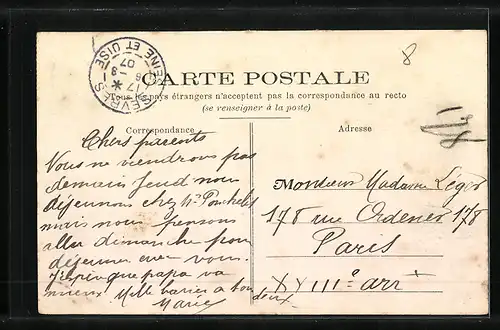 SÈVRES SEINE ET OISE
17 - 8
6 07
CARTE POSTALE
Tous les pays étrangers n'acceptent pas la correspondance au recto
(se renseigner à la poste)
Correspondance
Adresse
8
Chers parents
Nous ne viendrons pas
demain jeudi nous
déjeunons chez
mais nous pensons
aller dimanche pour
déjeuner avec vous.
J'espère que papa va
mieux Mille baisers à tous
deux.
Marie
Monsieur Madame Léger
178 rue Ordener 178
Paris
XVIII e arr t